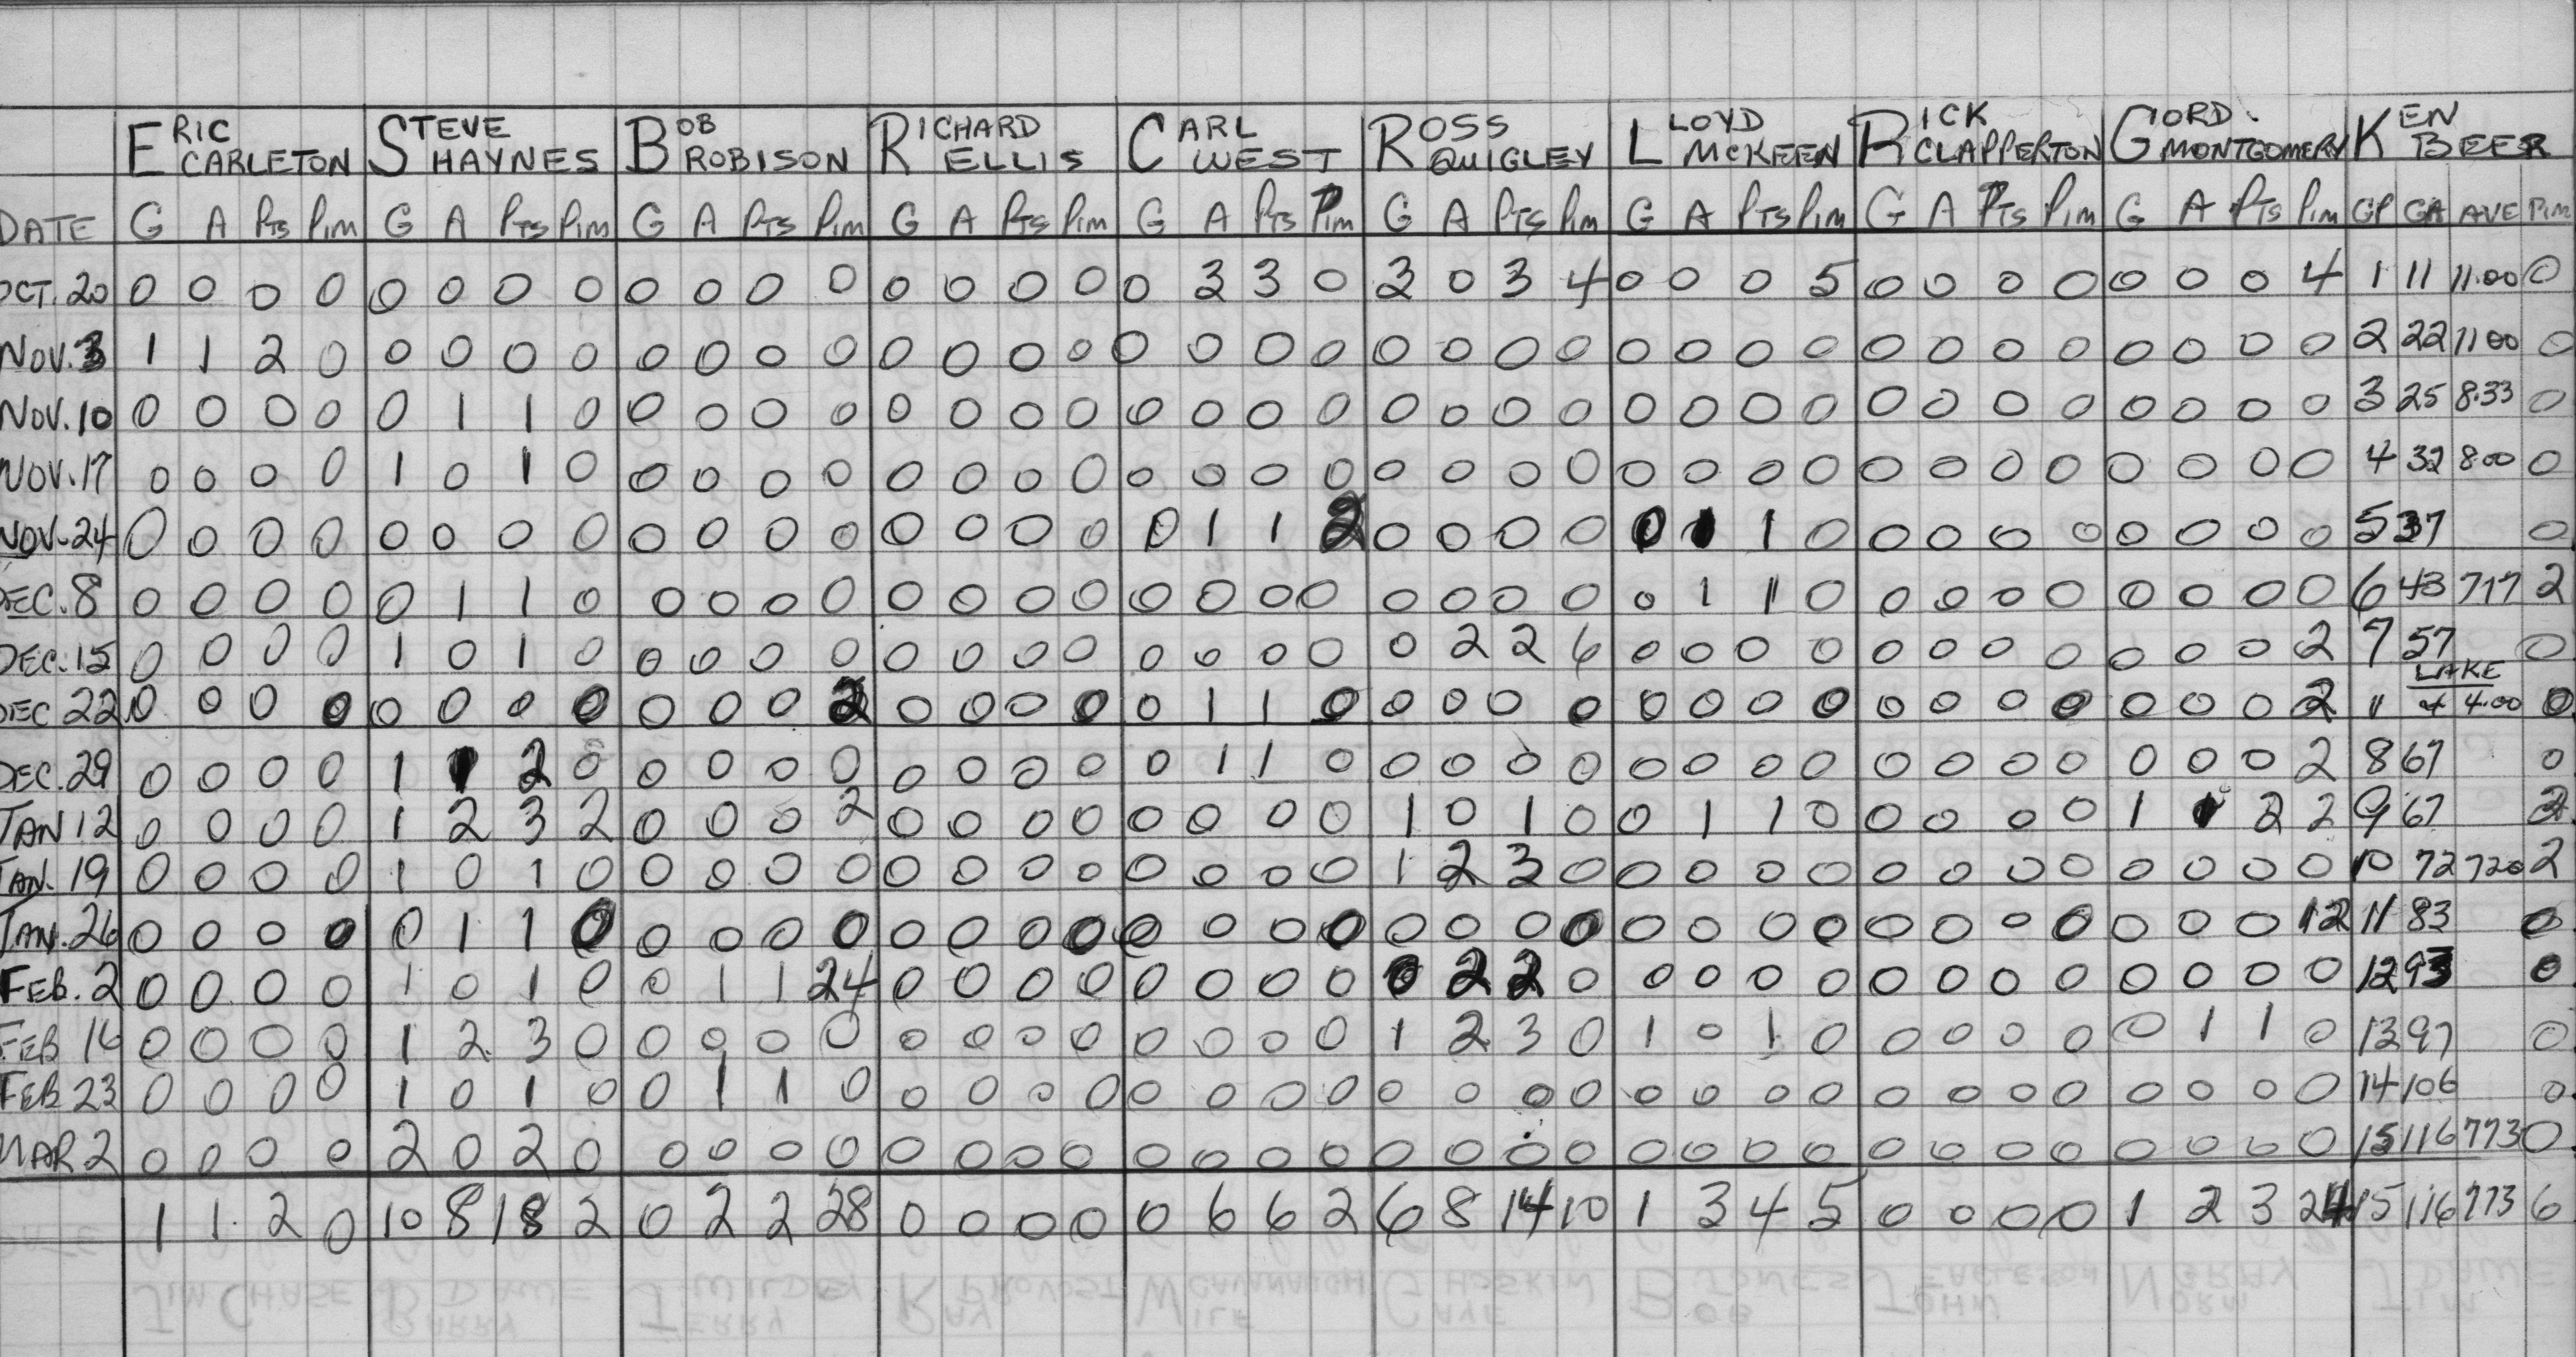 ERIC CARLETON STEVE HAYNES BOB ROBISON RICHARD ELLIS CARL WEST ROSS QUIGLEY LLOYD MCKEEN RICK CLAPPERTON GORD. MONTGOMERY KEN BEER
DATE G A PTS PIM G A PTS PIM G A PTS PIM G A PTS PIM G A PTS PIM G A PTS PIM G A PTS PIM G A PTS PIM G A PTS PIM GP GA AVE PIM
OCT. 20 0 0 0 0 0 0 0 0 0 0 0 0 0 0 0 0 0 3 3 0 3 0 3 4 0 0 0 5 0 0 0 0 0 0 0 4 1 11 11.00 0
NOV. 3 1 1 2 0 0 0 0 0 0 0 0 0 0 0 0 0 0 0 0 0 0 0 0 0 0 0 0 0 0 0 0 0 0 0 0 0 2 22 11 00 0
NOV. 10 0 0 0 0 0 1 1 0 0 0 0 0 0 0 0 0 0 0 0 0 0 0 0 0 0 0 0 0 0 0 0 0 0 0 0 0 3 25 8.33 0
NOV. 17 0 0 0 0 1 0 1 0 0 0 0 0 0 0 0 0 0 0 0 0 0 0 0 0 0 0 0 0 0 0 0 0 0 0 0 0 4 32 8.00 0
NOV-24 0 0 0 0 0 0 0 0 0 0 0 0 0 0 0 0 0 1 1 2 0 0 0 0 0 1 1 0 0 0 0 0 0 0 0 0 5 37 0
DEC. 8 0 0 0 0 0 1 1 0 0 0 0 0 0 0 0 0 0 0 0 0 0 0 0 0 0 1 1 0 0 0 0 0 0 0 0 0 6 43 717 2
DEC. 15 0 0 0 0 1 0 1 0 0 0 0 0 0 0 0 0 0 0 0 0 0 2 2 6 0 0 0 0 0 0 0 0 0 0 0 2 7 57 0
DEC 22 0 0 0 0 0 0 0 0 0 0 0 2 0 0 0 0 0 1 1 0 0 0 0 0 0 0 0 0 0 0 0 0 0 0 0 2 11 LAKE 4.00 0
DEC. 29 0 0 0 0 1 1 2 0 0 0 0 0 0 0 0 0 0 1 1 0 0 0 0 0 0 0 0 0 0 0 0 0 0 0 0 2 8 67 0
JAN 12 0 0 0 0 1 2 3 2 0 0 0 2 0 0 0 0 0 0 0 0 1 0 1 0 0 1 1 0 0 0 0 0 1 1 2 2 9 67 2
JAN. 19 0 0 0 0 1 0 1 0 0 0 0 0 0 0 0 0 0 0 0 0 1 2 3 0 0 0 0 0 0 0 0 0 0 0 0 0 10 72 720 2
JAN. 26 0 0 0 0 0 1 1 0 0 0 0 0 0 0 0 0 0 0 0 0 0 0 0 0 0 0 0 0 0 0 0 0 0 0 0 12 11 83 0
FEB. 2 0 0 0 0 1 0 1 0 0 1 1 24 0 0 0 0 0 0 0 0 0 2 2 0 0 0 0 0 0 0 0 0 0 0 0 0 12 93 0
FEB 16 0 0 0 0 1 2 3 0 0 0 0 0 0 0 0 0 0 0 0 0 1 2 3 0 1 0 1 0 0 0 0 0 0 1 1 0 13 97 0
FEB 23 0 0 0 0 1 0 1 0 0 1 1 0 0 0 0 0 0 0 0 0 0 0 0 0 0 0 0 0 0 0 0 0 0 0 0 0 14 106 0
MAR 2 0 0 0 0 2 0 2 0 0 0 0 0 0 0 0 0 0 0 0 0 0 0 0 0 0 0 0 0 0 0 0 0 0 0 0 0 15 116 773 0
1 1 2 0 10 8 18 2 0 2 2 28 0 0 0 0 0 6 6 2 6 8 14 10 1 3 4 5 0 0 0 0 1 2 3 24 15 116 773 6